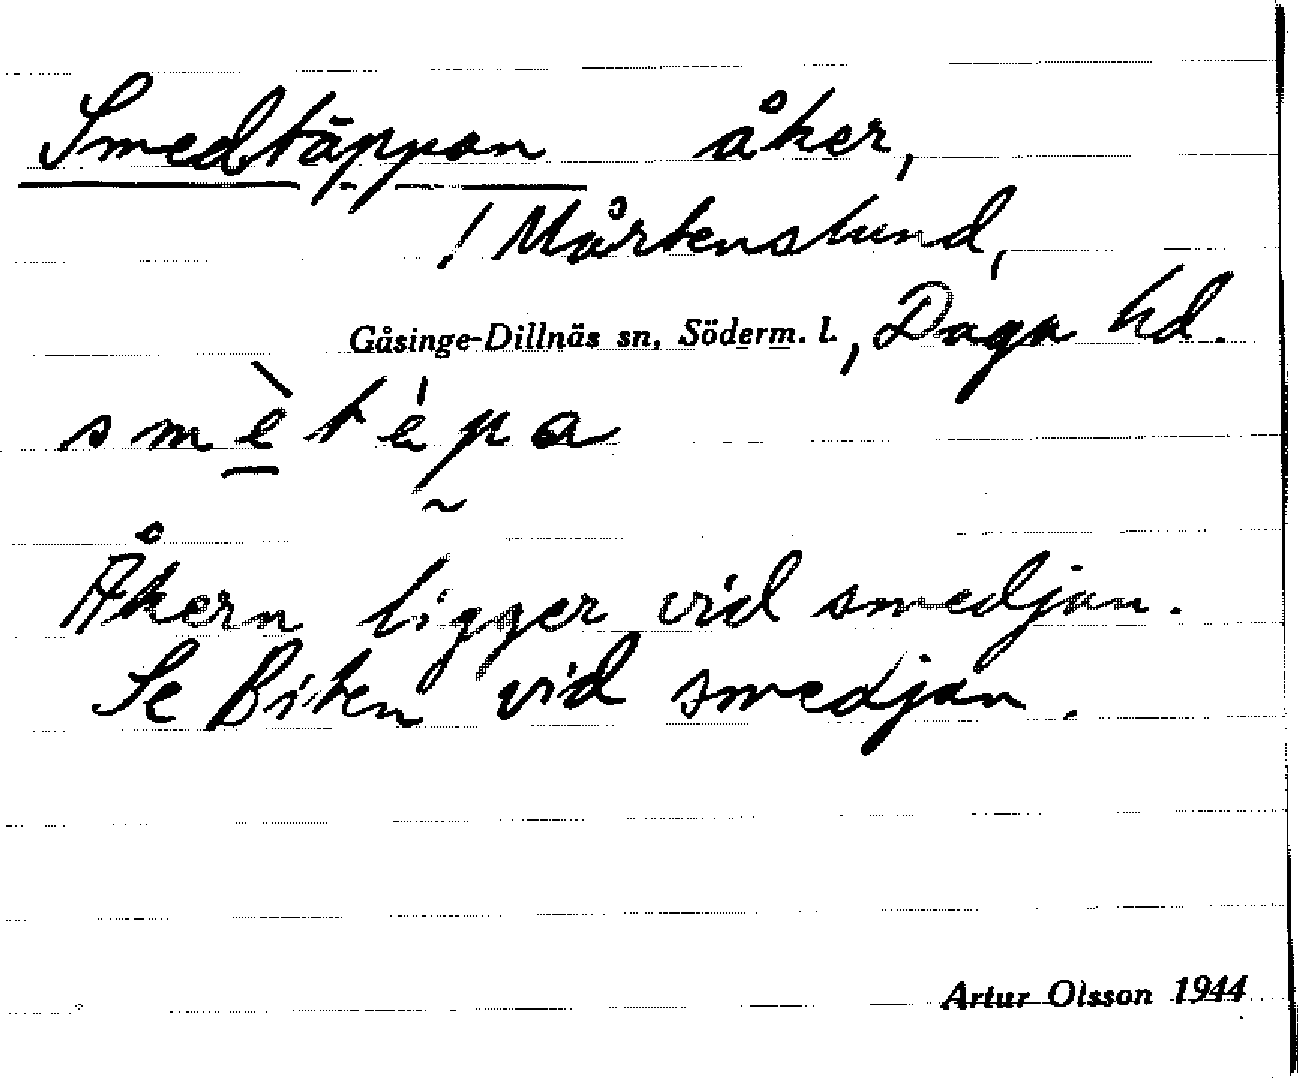 Smedtäppan åker,
/ Mårtenslund,
Gåsinge-Dillnäs sn, Söderm. l., Daga hd.
smètépa
Åkern ligger vid smedjan.
Se Biten vid smedjan.
Artur Olsson 1944